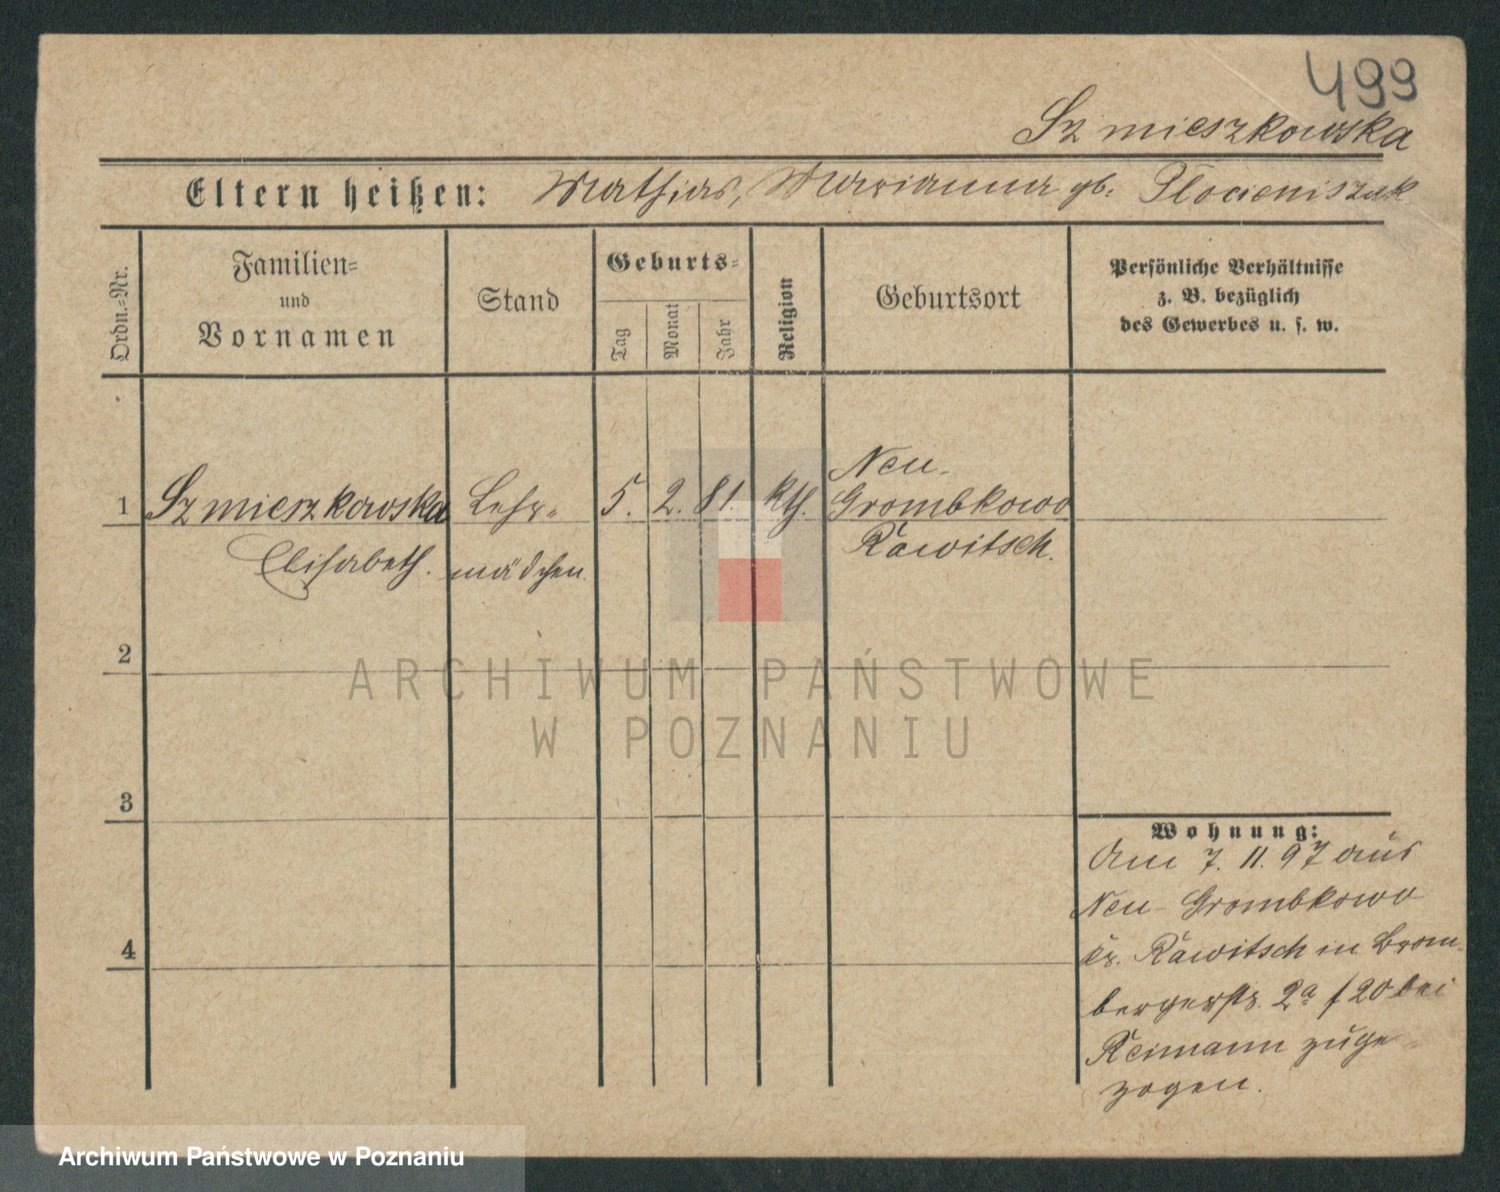 499
Szmieszkowska
Eltern heißen: Mathias, Marianna gb. Plocieniszak
Ordn.-Nr.
Familien-
und
Vornamen
Stand
Geburts-
Tag
Monat
Jahr
Religion
Geburtsort
Persönliche Verhältnisse
z. B. bezüglich
des Gewerbes u. s. w.
1 Szmieszkowska Lehr- 5. 2. 81. kth. Neu-
Grombkowo
Elisabeth. mädchen. Rawitsch.
2
3
4
Wohnung:
Am 7. 11. 97 aus
Neu-Grombkowo
Kr. Rawitsch in Brom
bergerstr. 2a f 20 bei
Reimann zuge
zogen.
ARCHIWUM PAŃSTWOWE
W POZNANIU
Archiwum Państwowe w Poznaniu